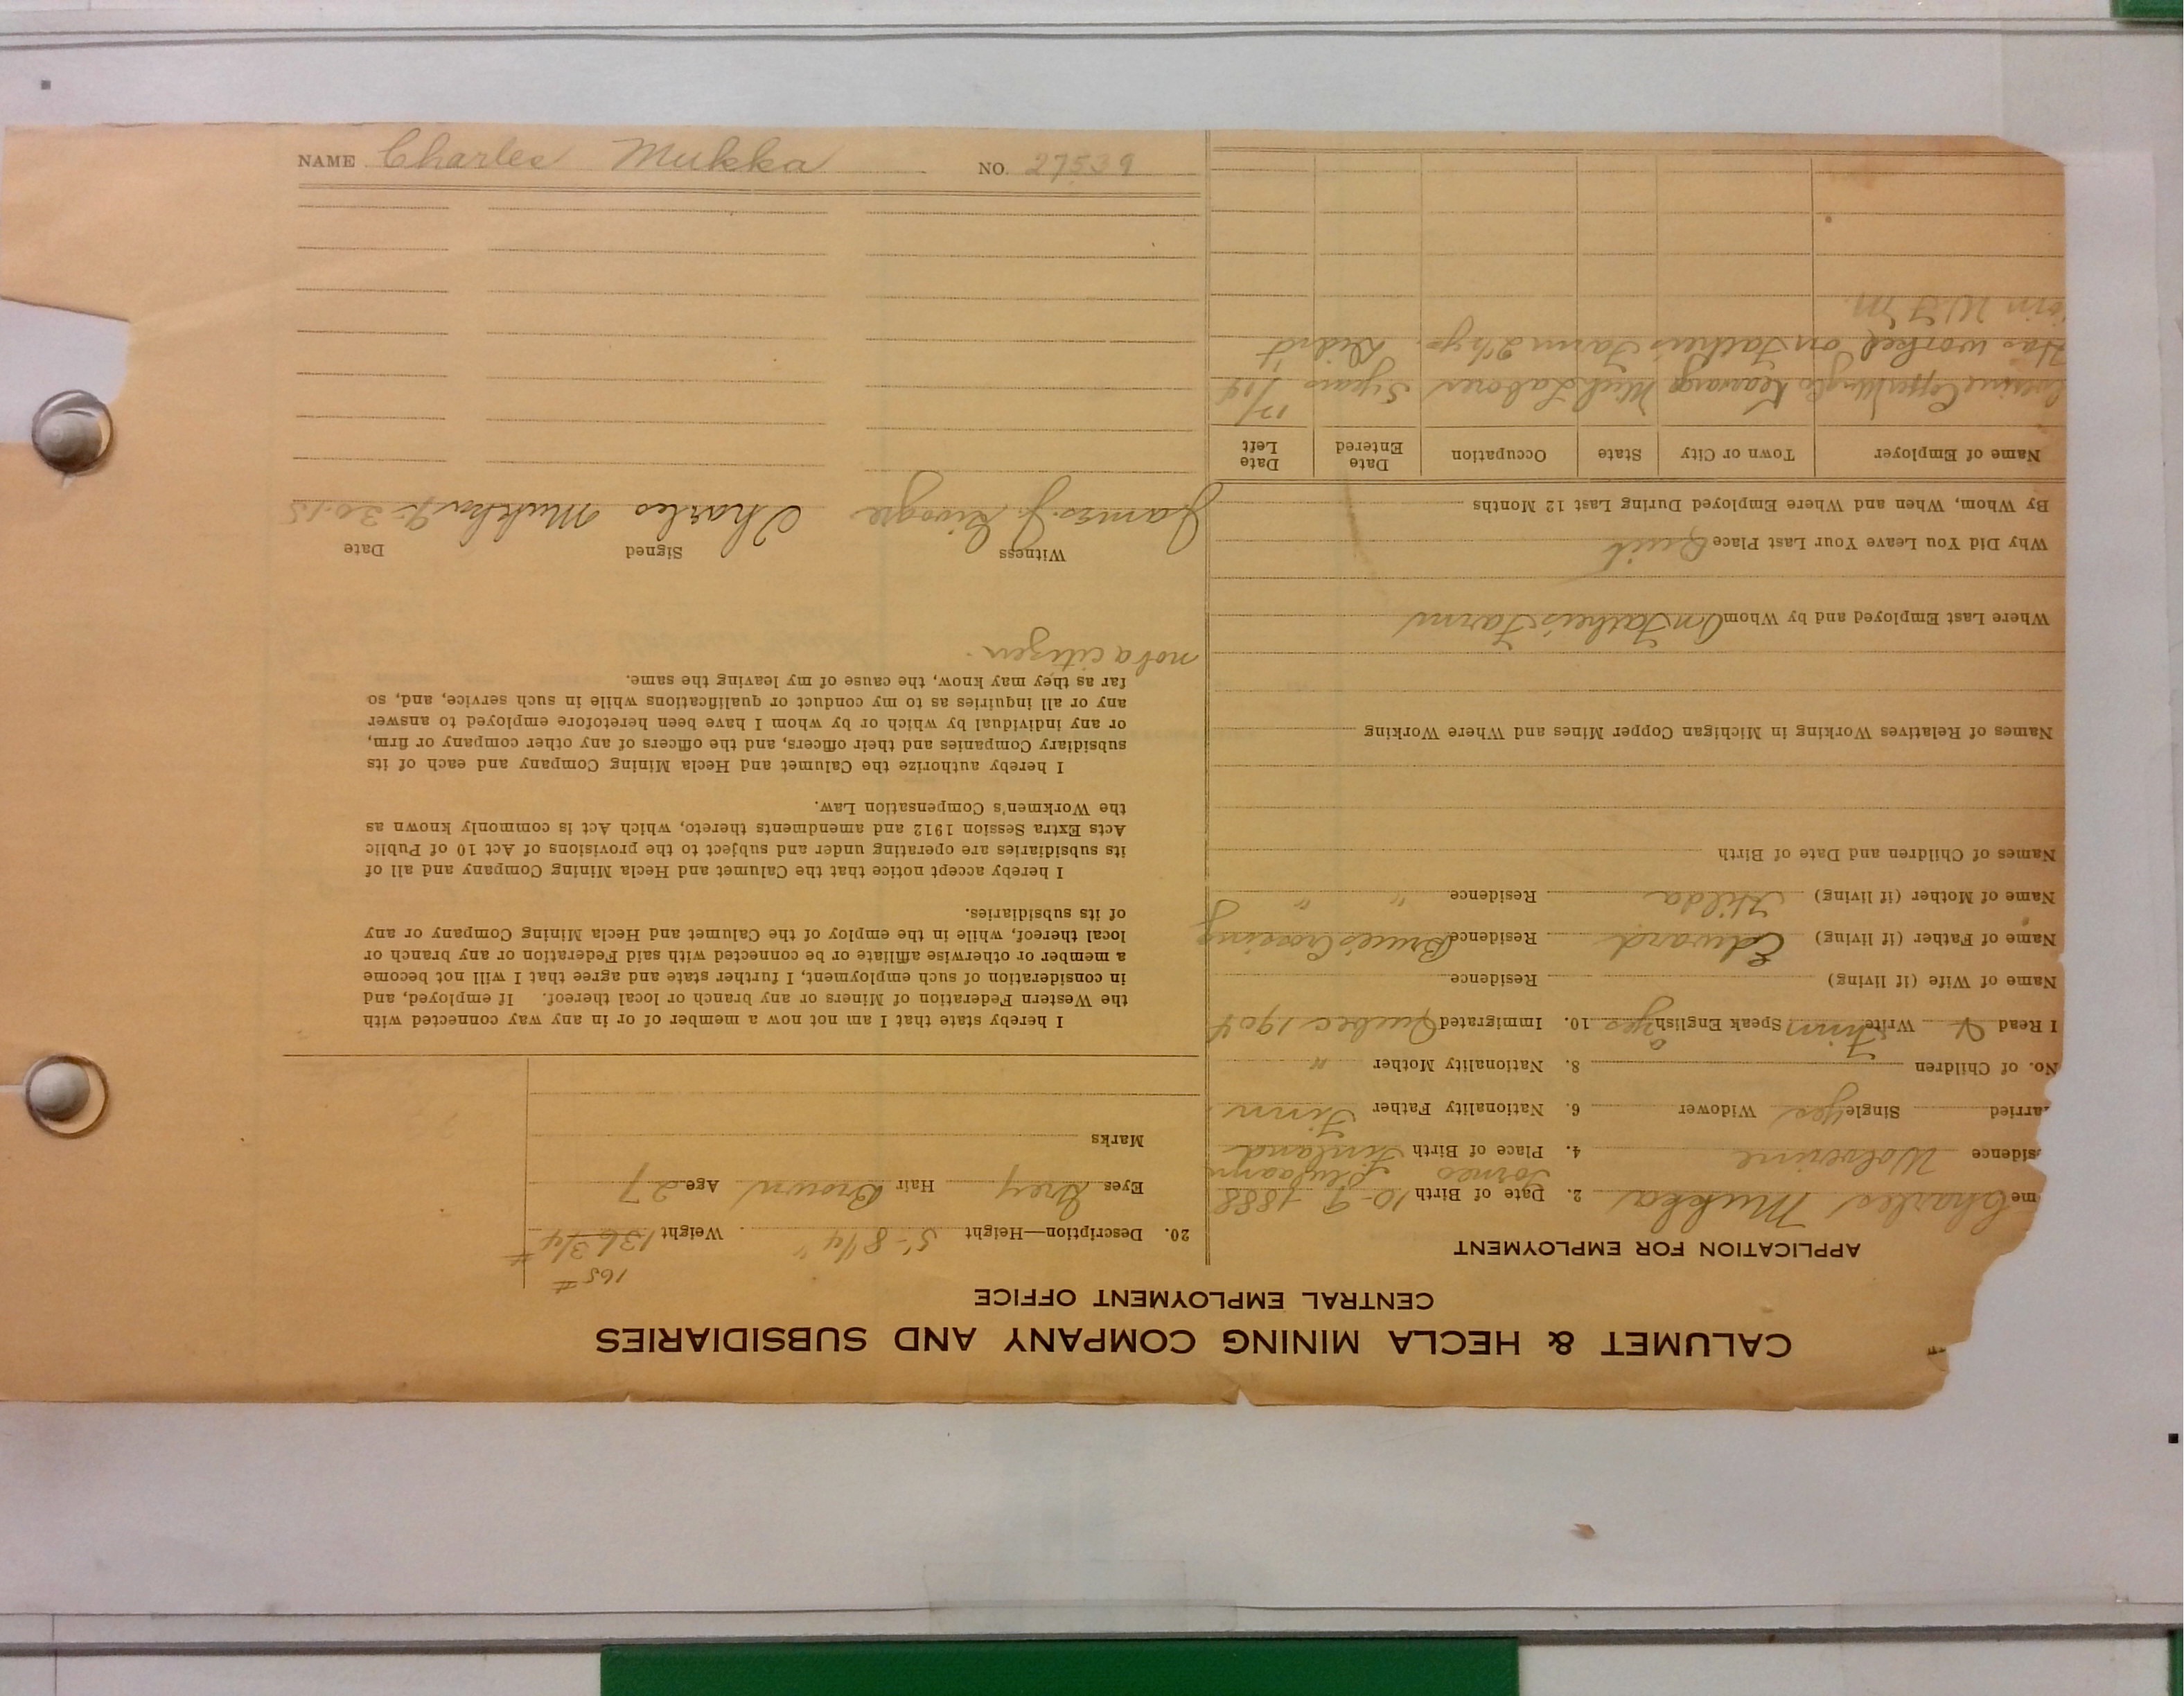 CALUMET & HECLA MINING COMPANY AND SUBSIDIARIES
CENTRAL EMPLOYMENT OFFICE
APPLICATION FOR EMPLOYMENT
me Charles Mukka 2. Date of Birth 10-9-1888
Torneo
sidence Wolverine 4. Place of Birth Finland
arried Single yes Widower 6. Nationality Father Finn
No. of Children 8. Nationality Mother "
I Read Write Finn Speak English yes 10. Immigrated Quebec 1904
Name of Wife (if living) Residence
Name of Father (if living) Edward Residence Bruces Crossing
Name of Mother (if living) Hilda Residence " "
Names of Children and Date of Birth
Names of Relatives Working in Michigan Copper Mines and Where Working
Where Last Employed and by Whom On Father's Farm
Why Did You Leave Your Last Place Quit
By Whom, When and Where Employed During Last 12 Months
Name of Employer Town or City State Occupation Date Entered Date Left
Kearsarge Mich Laborer 5 years 12/14
Has worked on Father's Farm 2½ yrs. Didn't
join W.F.M.
165#
20. Description—Height 5'-8¼" Weight 136 3/4#
Eyes Grey Hair Brown Age 27
Marks
I hereby state that I am not now a member of or in any way connected with
the Western Federation of Miners or any branch or local thereof. If employed, and
in consideration of such employment, I further state and agree that I will not become
a member or otherwise affiliate or be connected with said Federation or any branch or
local thereof, while in the employ of the Calumet and Hecla Mining Company or any
of its subsidiaries.
I hereby accept notice that the Calumet and Hecla Mining Company and all of
its subsidiaries are operating under and subject to the provisions of Act 10 of Public
Acts Extra Session 1912 and amendments thereto, which Act is commonly known as
the Workmen's Compensation Law.
I hereby authorize the Calumet and Hecla Mining Company and each of its
subsidiary Companies and their officers, and the officers of any other company or firm,
or any individual by which or by whom I have been heretofore employed to answer
any or all inquiries as to my conduct or qualifications while in such service, and, so
far as they may know, the cause of my leaving the same.
not a citizen.
Witness Signed Date
James J. Charles Mukka 9-30-15
NAME Charles Mukka NO. 27539